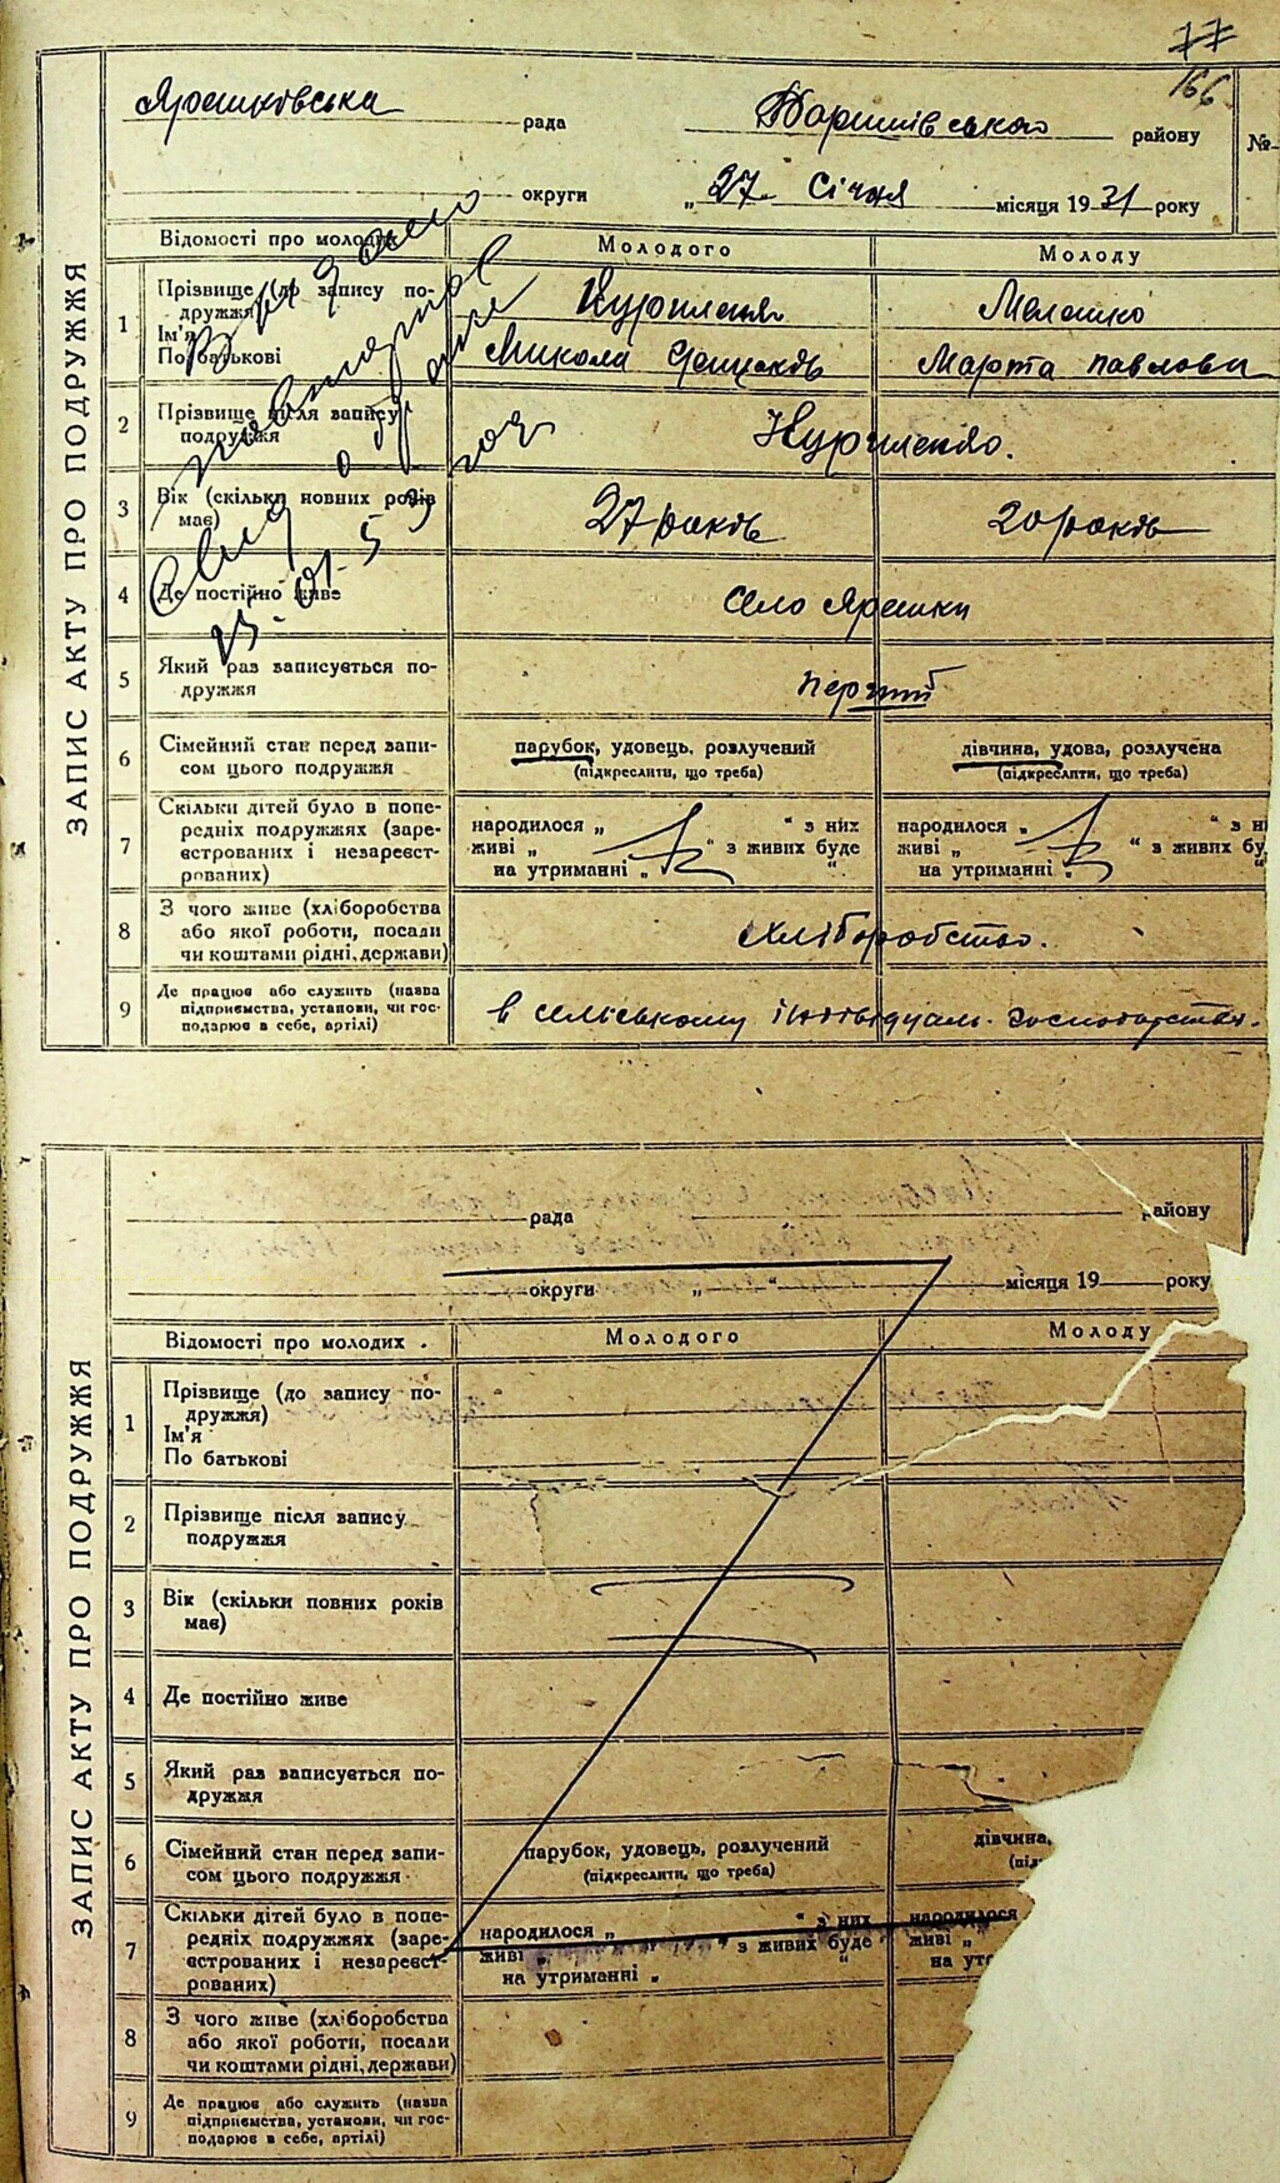 77
166
Ярешківська рада Баришівського району №
округи „ 27 " Січня місяця 1931 року
ЗАПИС АКТУ ПРО ПОДРУЖЖЯ
Відомості про молодих Молодого Молоду
1 Прізвище (до запису подружжя) Куриленко Мелашко
Ім'я
По батькові Микола Марта Павлови
2 Прізвище після запису подружжя Куриленко.
3 Вік (скільки повних років має) 27 років 20 років
4 Де постійно живе село Ярешки
5 Який раз записується по-
дружжя перший
6 Сімейний стан перед запи- парубок, удовець, розлучений дівчина, удова, розлучена
сом цього подружжя (підкреслити, що треба) (підкреслити, що треба)
7 Скільки дітей було в попе-
редніх подружжях (заре- народилося „ " з них народилося „ " з н
єстрованих і незареєст- живі „ " з живих буде живі „ " з живих бу
рованих) на утриманні „ " на утриманні „ "
8 З чого живе (хліборобства
або якої роботи, посади хліборобство.
чи коштами рідні, держави)
9 Де працює або служить (назва
підприємства, установи, чи гос- в сельському індивідуаль. господарстві.
подарює в себе, артілі)
повторне
о
23-01-53
рада району
округи „ " місяця 19 року
ЗАПИС АКТУ ПРО ПОДРУЖЖЯ
Відомості про молодих Молодого Молоду
1 Прізвище (до запису по-
дружжя)
Ім'я
По батькові
2 Прізвище після запису
подружжя
3 Вік (скільки повних років
має)
4 Де постійно живе
5 Який раз записується по-
дружжя
6 Сімейний стан перед запи- парубок, удовець, розлучений дівчина,
сом цього подружжя (підкреслити, що треба) (під
7 Скільки дітей було в попе-
редніх подружжях (заре- народилося „ " з них народилося
єстрованих і незареєст- живі „ " з живих буде живі „
рованих) на утриманні „ " на ут
8 З чого живе (хліборобства
або якої роботи, посади
чи коштами рідні, держави)
9 Де працює або служить (назва
підприємства, установи, чи гос-
подарює в себе, артілі)